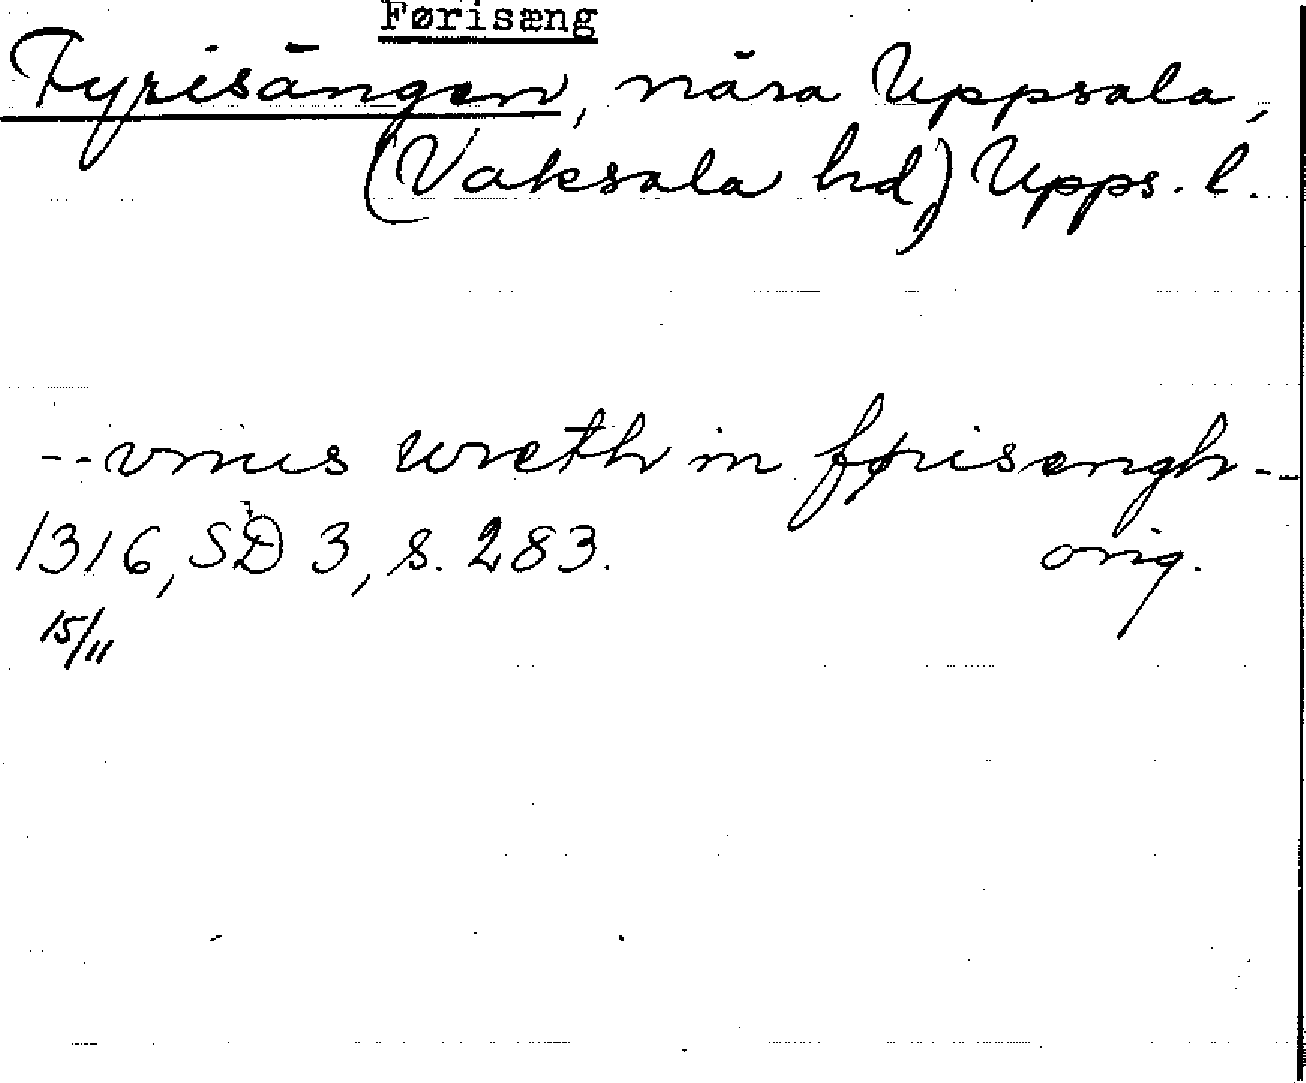 Førisæng
Fyrisängen, nära Uppsala,
(Vaksala hd) Upps. l.
-- vnius wreth in førisengh --
1316, SD 3, s. 283. orig.
15/11